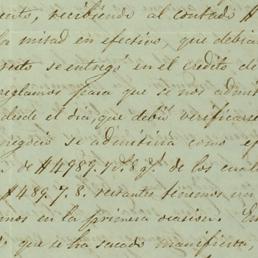 ento, recibiendo al contado #
la mitad en efectivo, que debia
se entregó en el credito de
reglamos para que se nos admit
desde el dia, que debió verificarse
negocio se admitiria como ef
de #4989. 7 de los cual
#489. 7. 8. restantes tenemos
enos en la primera ocasion. En
que se ha sacado manifiesta,